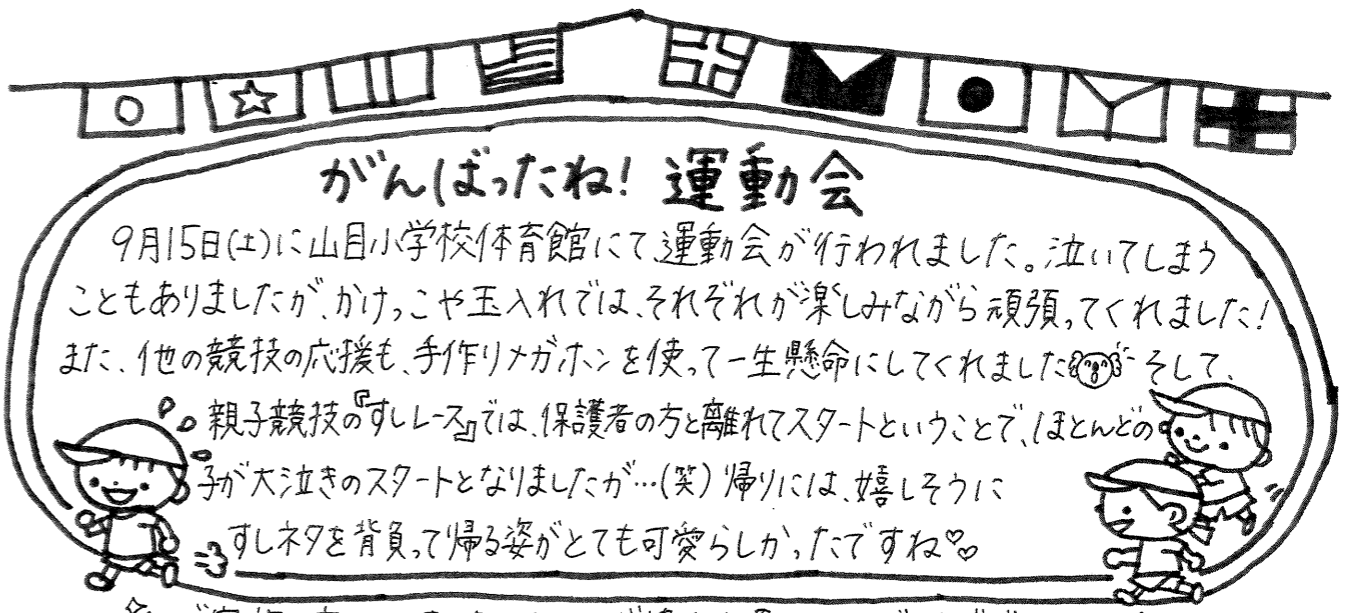 がんばったね! 運動会
9月15日(土)に山目小学校体育館にて運動会が行われました。泣いてしまう
こともありましたが、かけっこや玉入れでは、それぞれが楽しみながら頑張ってくれました!
また、他の競技の応援も、手作りメガホンを使って一生懸命にしてくれました そして、
親子競技の『すしレース』では、保護者の方と離れてスタートということで、ほとんどの
子が大泣きのスタートとなりましたが…(笑) 帰りには、嬉しそうに
すしネタを背負って帰る姿がとても可愛らしかったですね♡♡